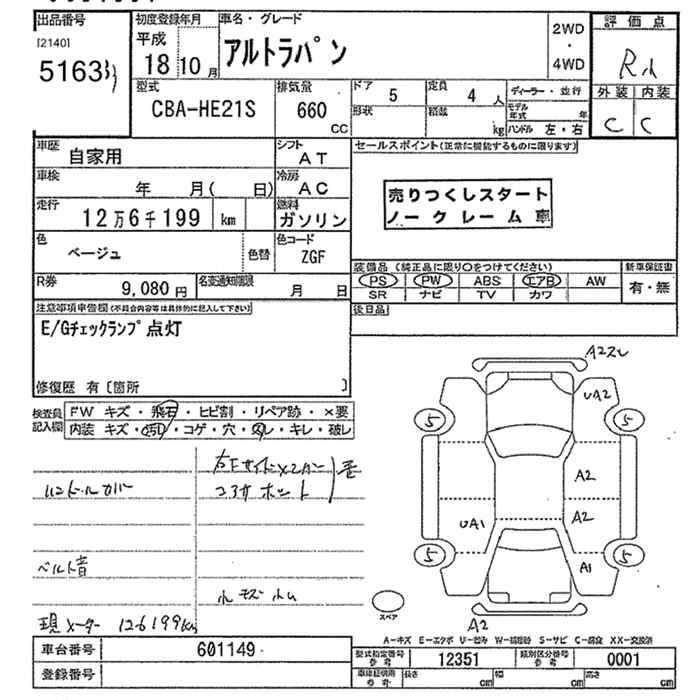 出品番号
[2140]
5163
初度登録年月
平成
18 10月
車名・グレード
アルトラパン
2WD
・
4WD
評価点
R
外装 内装
C C
型式
CBA-HE21S
排気量
660
CC
ドア
5
定員
4 人
形状
積載
kg
ディーラー・並行
モデル年式 年
ハンドル 左・右
車歴
自家用
シフト
AT
車検
年 月( 日)
冷房
AC
走行
12万6千199 km
燃料
ガソリン
色
ベージュ
色替
色コード
ZGF
R券
9,080円
名変通知期限
月 日
セールスポイント(正常に機能するものに限ります)
売りつくしスタート
ノークレーム車
装備品 (純正品に限り○をつけてください)
PS PW ABS エアB AW
SR ナビ TV カワ
新車保証書
有・無
後日品
注意事項申告欄(不具合内容等は具体的に記入して下さい)
E/Gチェックランプ点灯
修復歴 有〔箇所 〕
検査員記入欄
FW キズ・飛石・ヒビ割・リペア跡・×要
内装 キズ・汚れ・コゲ・穴・スレ・キレ・破レ
ハンドルカバー
ベルト音
現メーター 126199km
A2
UA2
5
5
A2
A2
UA1
A1
5
5
A2
スペア
A-キズ E-エクボ U-凹み W-補修跡 S-サビ C-腐食 XX-交換済
車台番号
601149
登録番号
型式指定番号
参考
12351
類別区分番号
参考
0001
車庫証明用
参考
長さ cm
幅 cm
高さ cm